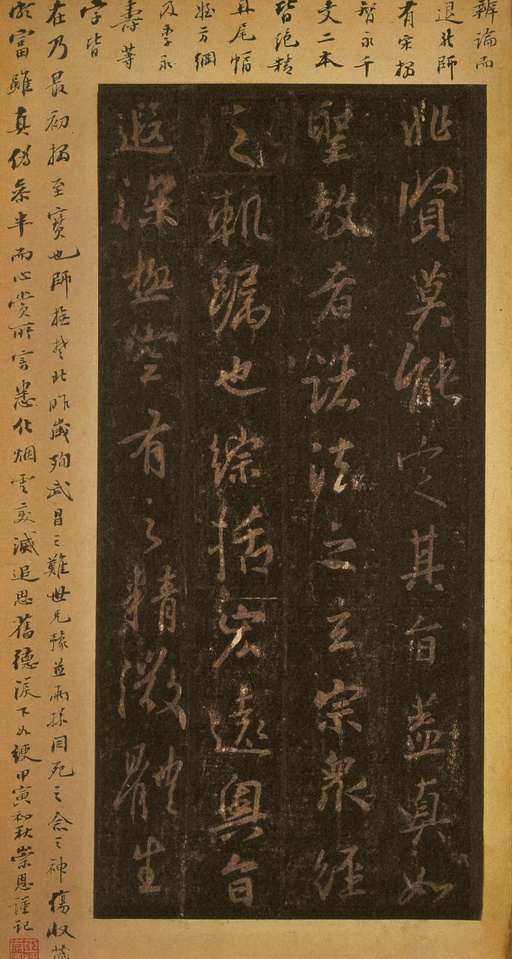 辨論而
退北師
有宋搨
智永千
文二本
皆絕精
其尾幅
方綱
及李
壽等
字皆
在乃最初搨至寶也師撫楚北昨歲殉武昌之難世兄豫並兩孫同死之念之神傷收藏
頗富雖真偽參半而心賞所寄悉化烟雲變滅追思舊德淚下如綆甲寅初秋崇恩謹記
非賢莫能定其旨蓋真如
聖教者諸法之玄宗眾經
之軌躅也綜括宏遠奧旨
遐深極空有之精微體生